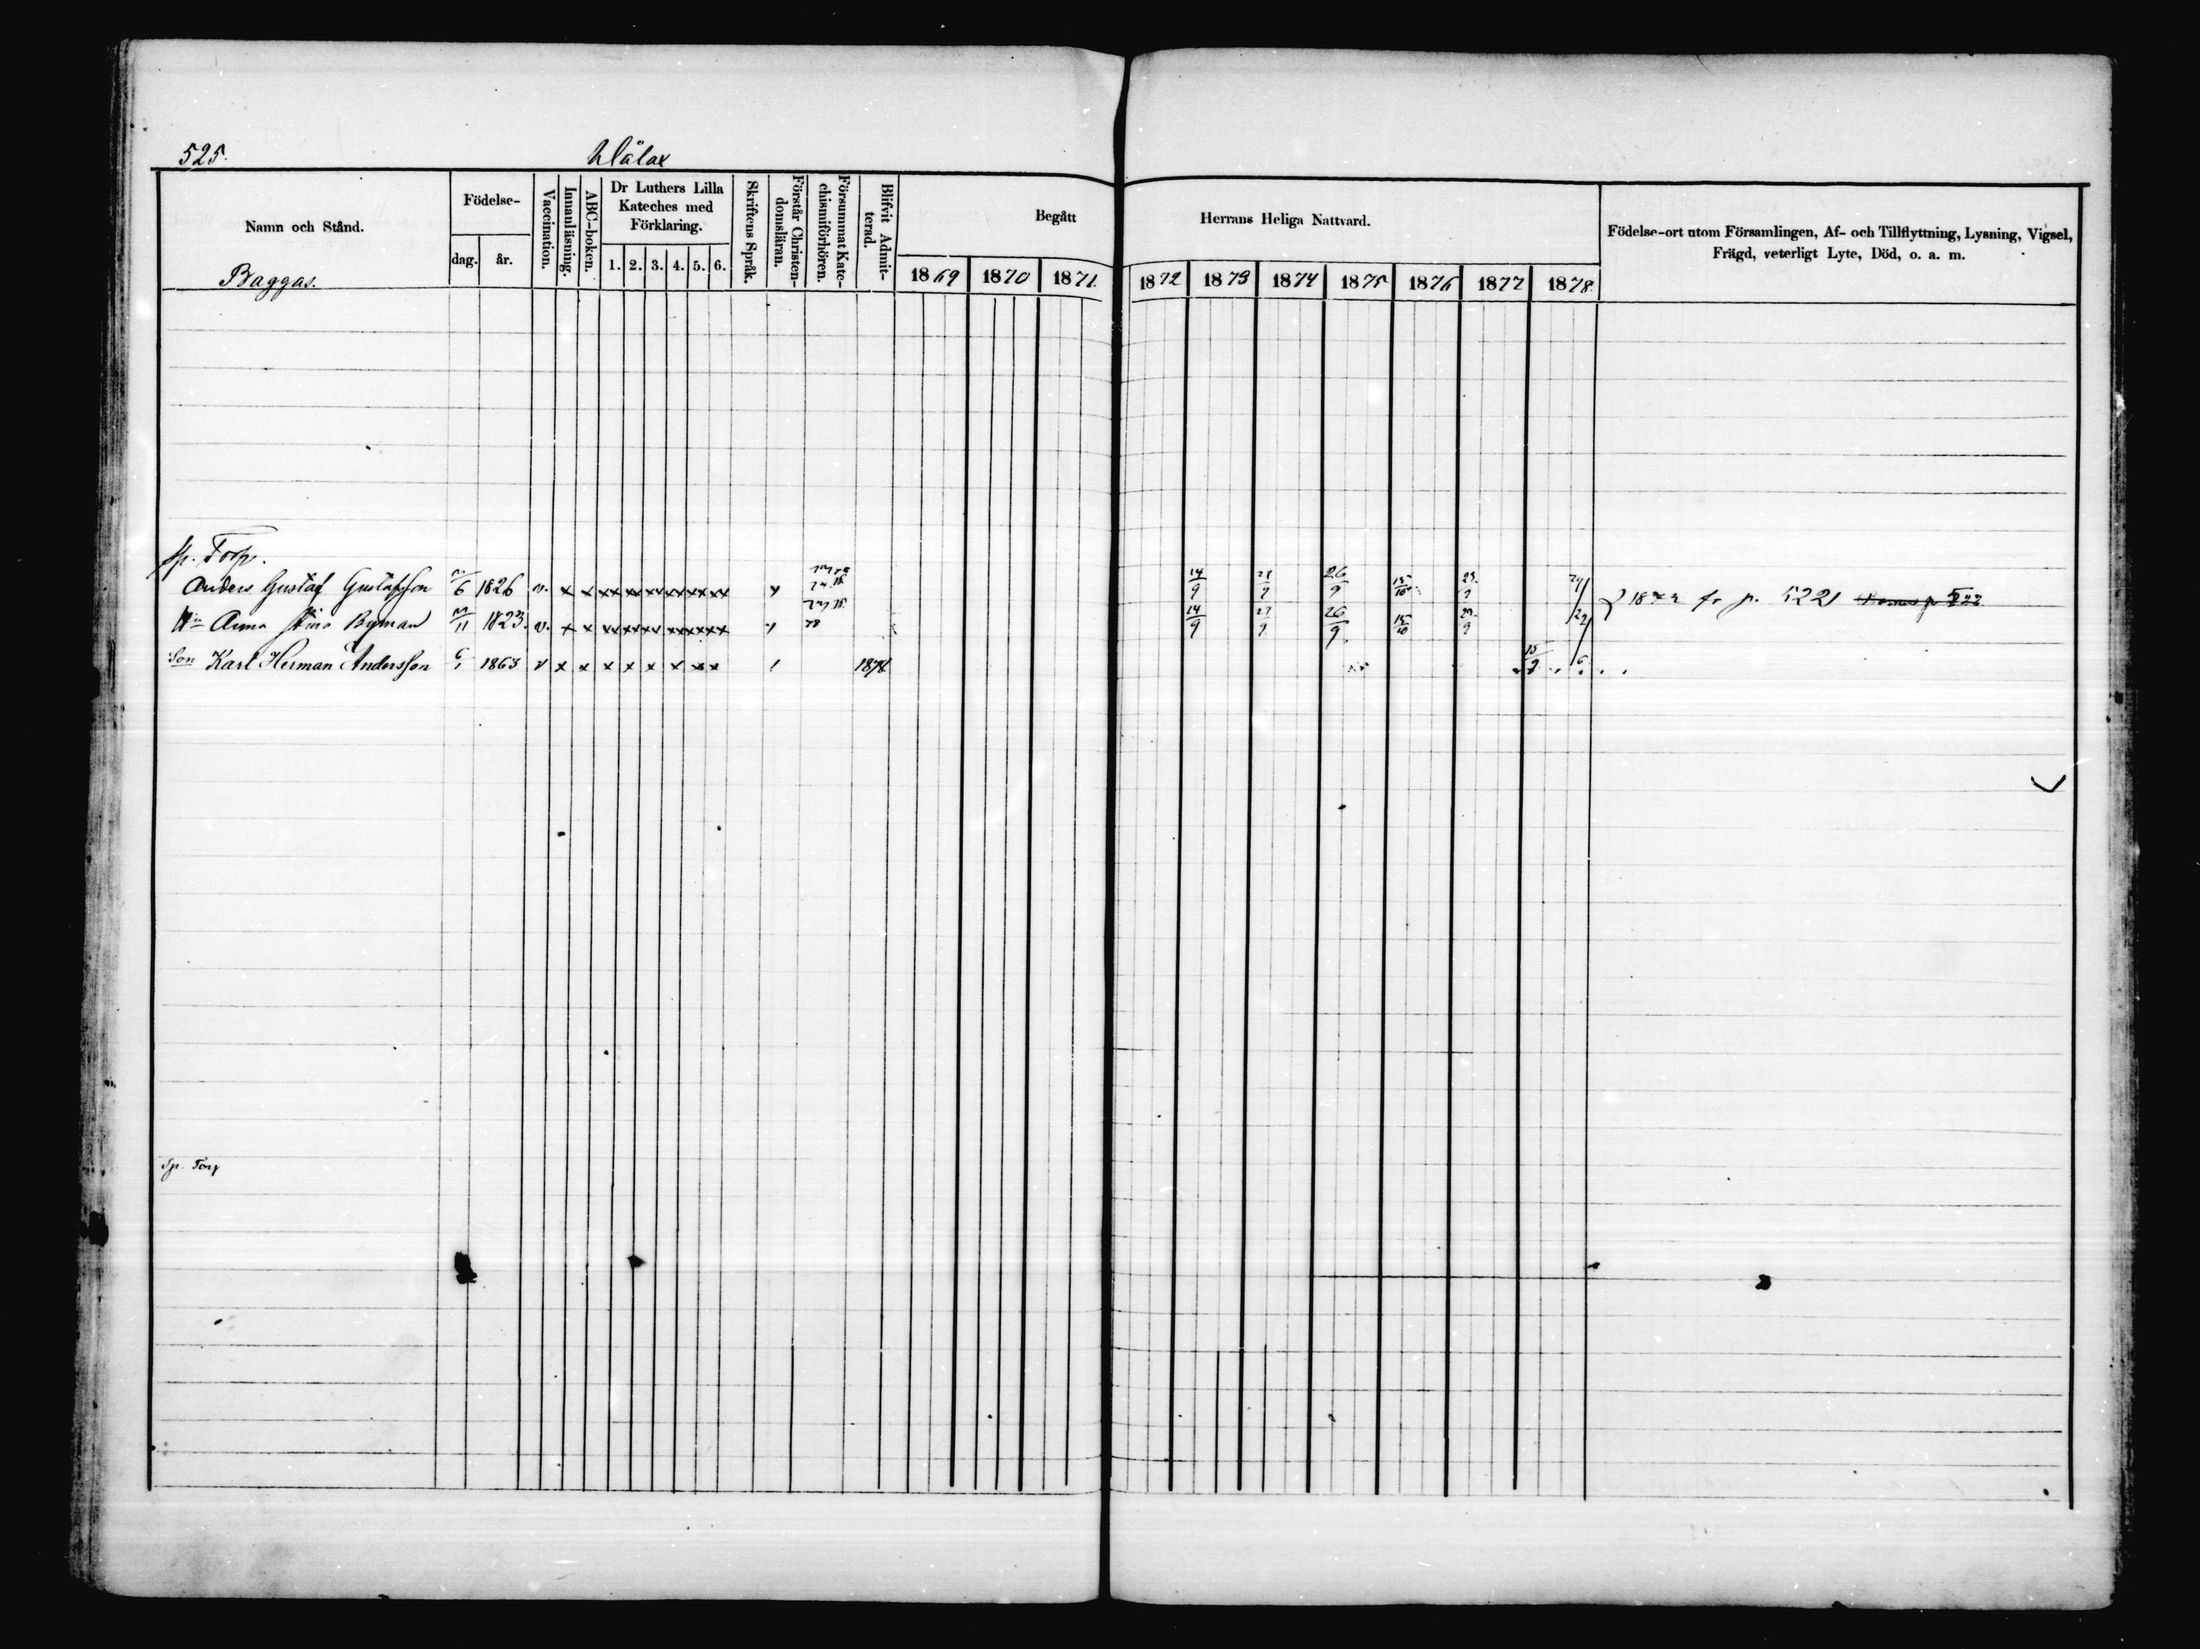 525.
Namn och Stånd.
Baggas.
Födelse-
dag. år.
Vaccination.
Innanläsning.
ABC-boken.
Dr Luthers Lilla
Kateches med
Förklaring.
1. 2. 3. 4. 5. 6.
Skriftens Språk.
Förstår Christen-
domsläran.
Försummat Kate-
chismiförhören.
Blifvit Admit-
terad.
Begått
1869 1870 1871.
Herrans Heliga Nattvard.
1872 1873 1874 1875 1876 1877 1878.
Födelse-ort utom Församlingen, Af- och Tillflyttning, Lysning, Vigsel,
Frägd, veterligt Lyte, Död, o. a. m.
Sp. Torp.
Anders Gustaf Gustafsson 1826 v. x x xx xx xx xx xx xx x 14/9 26/9 15/10 fr p. 522
Anna Stina Byman 1823. v. x x xx xx xx xx xx xx 78 14/9 26/9 15/10 23/9
Son Karl Herman Andersson 6/1 1863 v x x x x x x xx x 1878
Sp. Torp